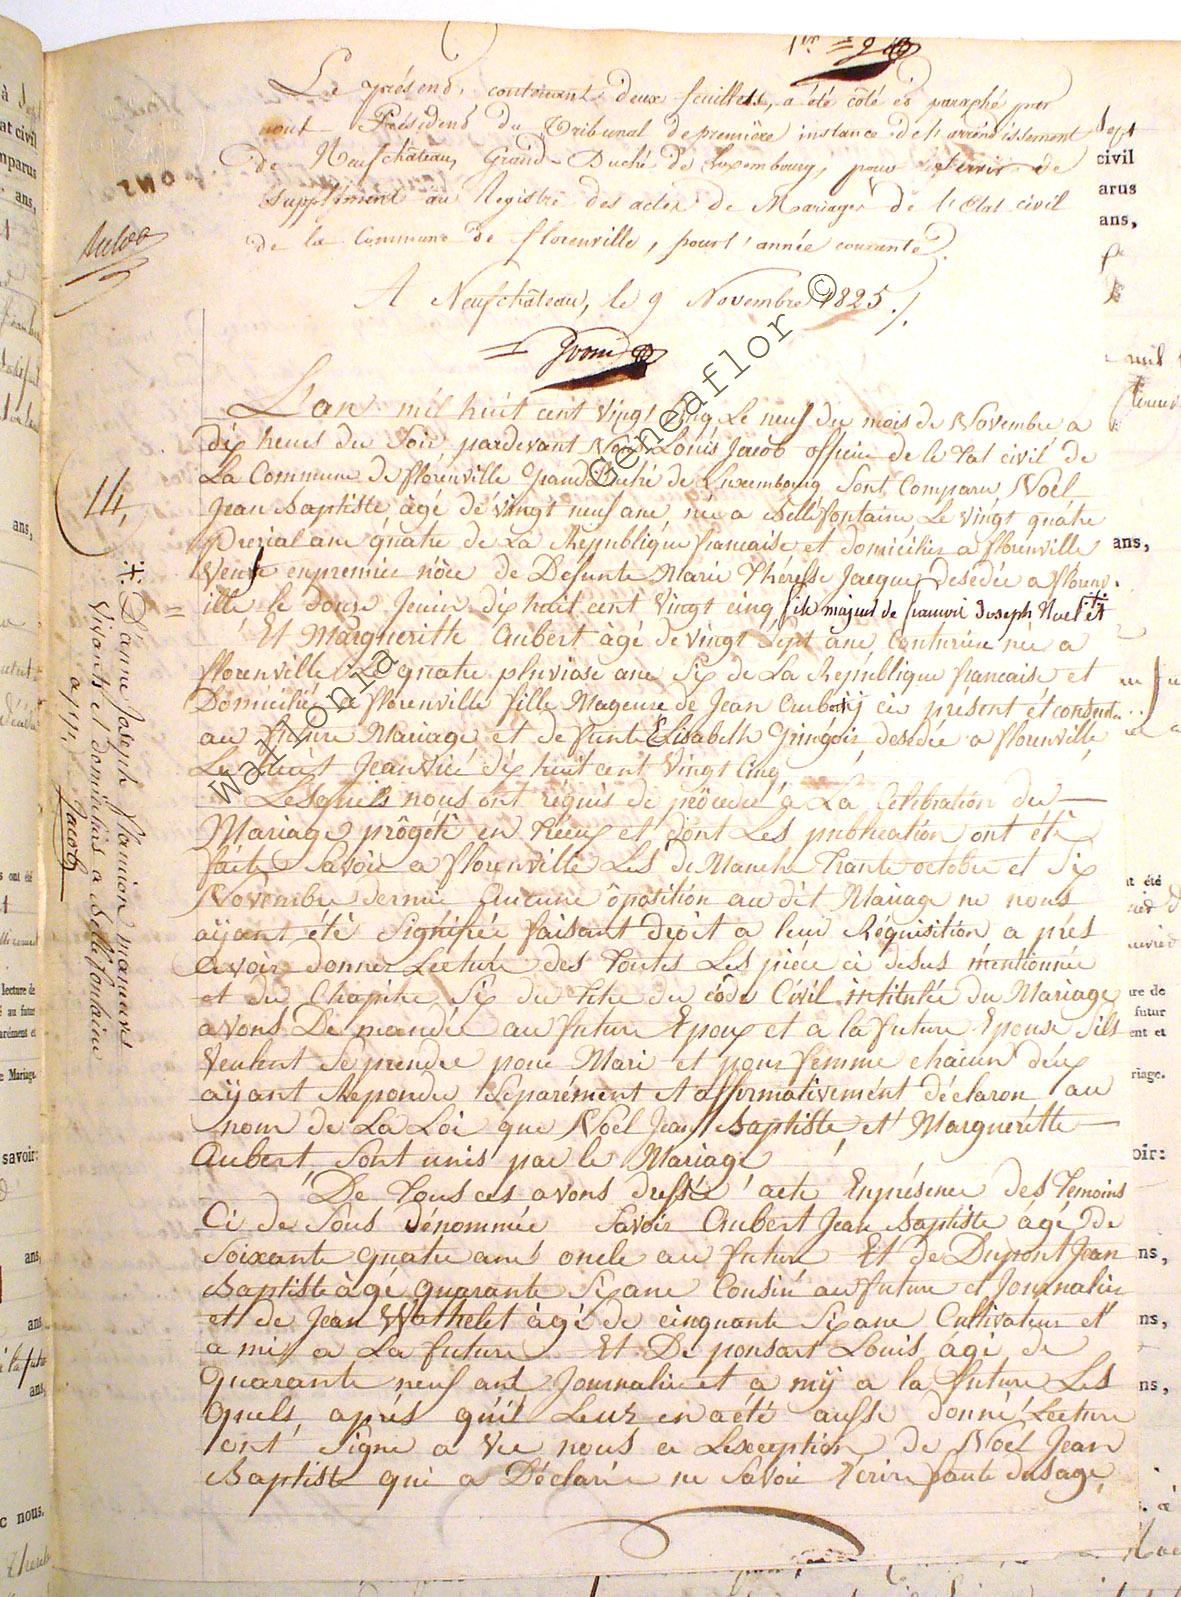 Le présent, contenant deux feuillets, a été côté et paraphé par
nous Président du Tribunal de première instance de l'arrondissement
de Neufchâteau, Grand-Duché de Luxembourg, pour servir de
Supplément au Registre des actes de Mariages de l'Etat civil
de la Commune de florenville, pour l'année courante.
A Neufchâteau, le 9 Novembre 1825 ./.
L'an mil huit cent vingt cinq Le neuf du mois de Novembre a
dix heures du Soir pardevant Nous Louis Jacob officier de le tat civil de
La Commune de florenville Grand Duché de Luxembourg Sont Comparu Noël
Jean Baptiste àgé de vingt neuf ane née a Bellefontaine Le vingt quatre
Prerial ane quatre de La République francaise et domicilier a florenville
Veuf en premier nôce de Defunte Marie Théresse Jacque desédée a florenv-
ille le douze Jeuin dix huit cent vingt cinq fils majeur de francois Joseph Noel et
14,
D'anne Joseph flamion manœuvres
Vivants et domiciliés a Bellefontaine
Jacob
Et Margueritte Aubert àgé de vingt Sept ane, Couturière née a
florenville Le quatre pluviose ane Six de La République francaise et
Domicilié a florenville fille Mageure de Jean Aubert ici présent et consent
au future Mariage et defunte Elisabeth Gringoir desédée a florenville
Le huit Jeanvié dix huit cent vingt cinq
Lesquels nous ont réquis de procedér a La Celebration du
Mariage prôgété en treux et dont Les publication ont été
faite Savoir a florenville Les dimanche trante octobre et Six
Novembre dernier Aucune ôposition au dit Mariage ne nous
aÿant été Signifiée faisant droit a leur Réquisition a prés
avoir donner Lecture des toutes Les piéce ci desus mentionnée
et du Chapitre Six du titre du côde Civil intitulée du Mariage
avons Demandée au future Epoux et a la future Epouse Sils
veulent Se prendre pour Mari et pour femme chacun d'eux
aÿant Repondu Séparément et affirmativement déclaron au
nom de La Loi que Noël Jean Baptiste et Margueritte
Aubert Sont unis par le Mariage
De tous ces avons dressé acte Enprésence des temoins
Ci de Sous dénommée Savoir Aubert Jean Baptiste àgé de
Soixante quatre ans oncle au future Et de Dupont Jean
Baptiste àgé quarante Six ane Cousin au future et Journalier
et de Jean Wathelet àgé de cinquante Six ane Cultivateur et
a mi a La future Et De ponsart Louis àgé de
quarante neuf ans Journalier et a mÿ a la future Les
quels après qu'il Leur en a été ausse donné Lecture
ont Signe a vec nous a Lexception de Noël Jean
Baptiste qui a Déclarée ne Savoir Ecrire faute dusage
wallonia
©Geneaflor